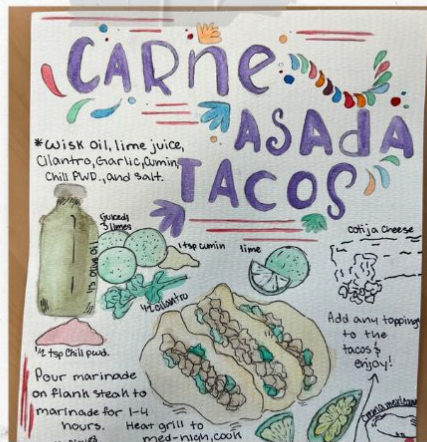 CARne
ASAdA
TACOS
*Wisk oil, lime juice,
Cilantro, Garlic, Cumin,
Chill PWD., and salt.
juiced
3 limes
1 tsp cumin
lime
cotija cheese
olive oil
cilantro
1/2 tsp Chill pwd.
Add any topping
to the
tacos &
enjoy!
Pour marinade
on flank steak to
marinade for 1-4
hours.
Heat grill to
med-high, cook